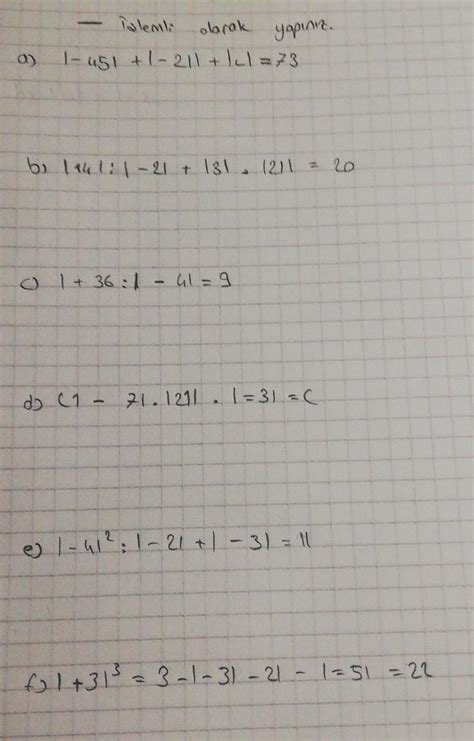 — İşlemli olarak yapınız.
a) |-45| + |-21| + |L| = 73
b) |+4| : |-2| + |3| . |21| = 20
c) | + 36 : | - 4| = 9
d) (1 - 7| . |21| . | = 3| = C
e) |-4|² : |-2| + | - 3| = 11
f) | + 3|³ = 3 - | - 3| - 2| - | = 5| = 22